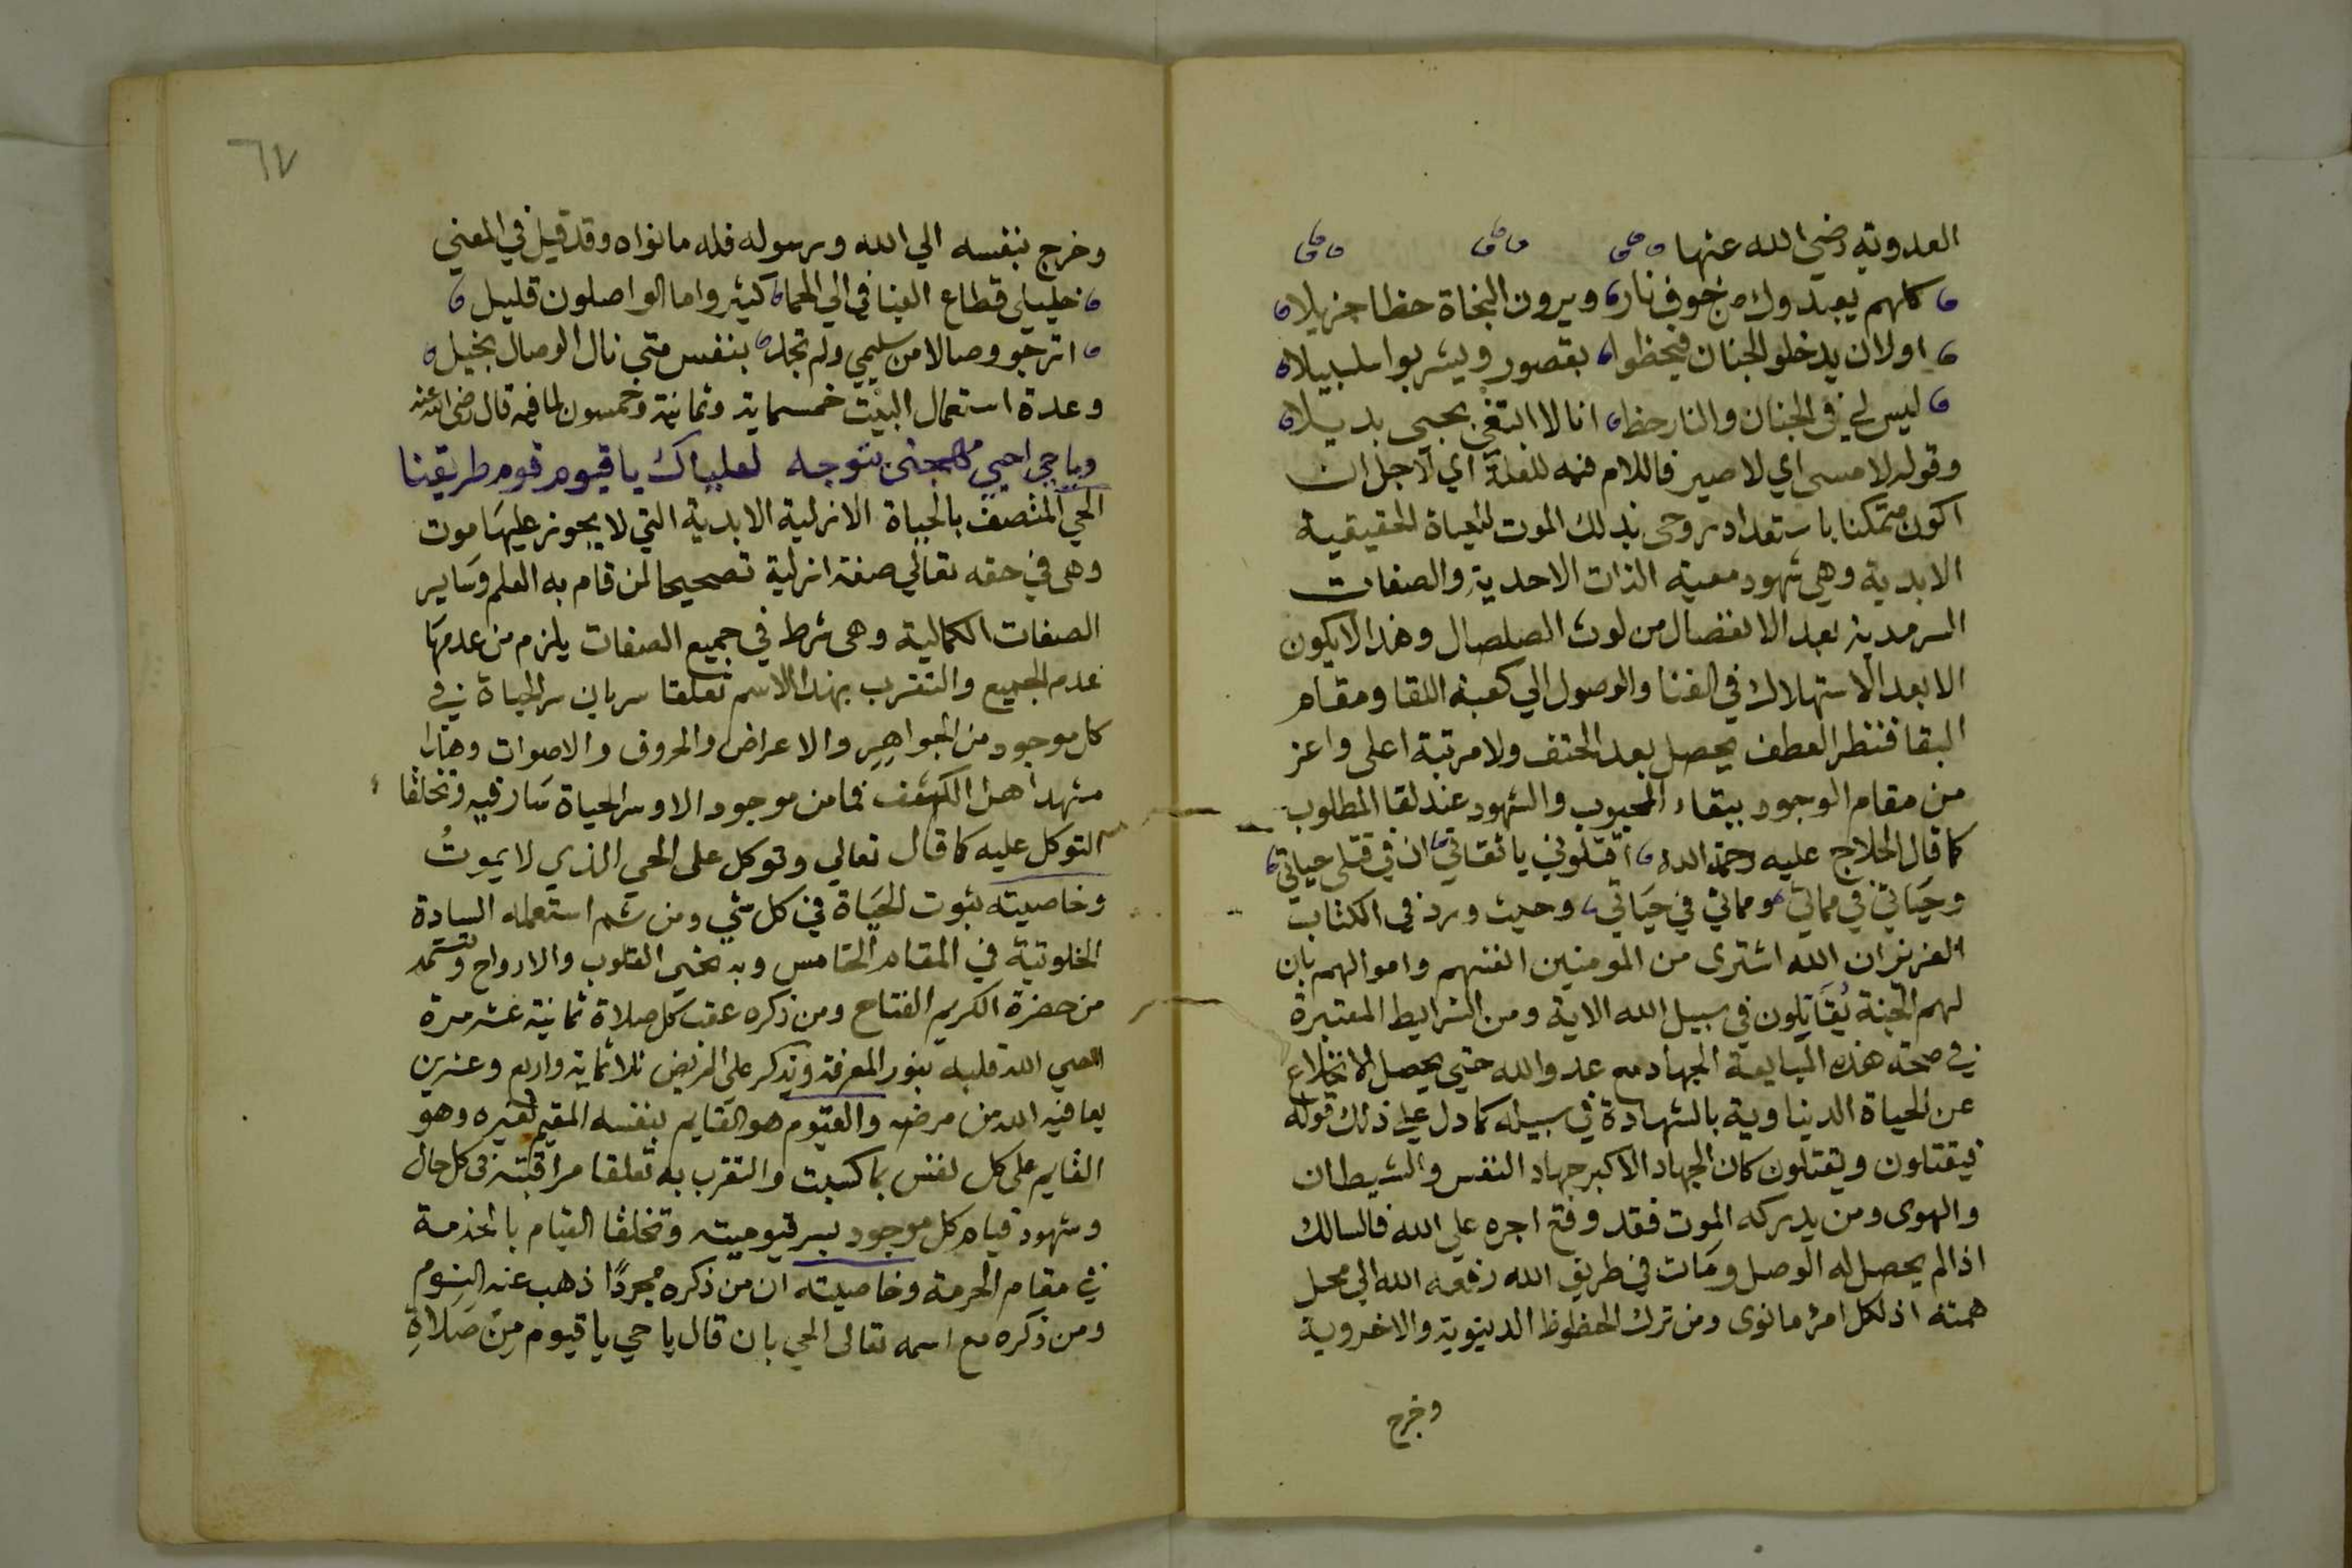 العدوية رضي الله عنها
كلهم يعبدوك من خوف نار ويرون النجاة حظا جزيلا
او لان يدخلو الجنان فيحظوا بقصور ويشربوا سلسبيلا
ليس لي في الجنان والنار حظا انا لا ابتغي بحبي بديلا
وقوله لامسى اي لاصير فاللام فيه للعلة اي لاجل ان
اكون متمكنا باستعداد روحى بذلك الموت للحياة الحقيقية
الابدية وهي شهود معية الذات الاحدية والصفات
السرمدية بعد الانفصال من لوث الصلصال وهذا لا يكون
الا بعد الاستهلاك في الفنا والوصول الي كعبة اللقا ومقام
البقا فنظر العطف يحصل بعد الحتف ولا مرتبة اعلى واعز
من مقام الوجود ببقاء المحبوب والشهود عند لقا المطلوب
كما قال الحلاج عليه رحمة الله اقتلوني يا ثقاتي ان في قتلى حياتي
وحياتي في مماتي ومماتي في حياتي وحيث ورد في الكتاب
العزيز ان الله اشترى من المومنين انفسهم واموالهم بان
لهم الجنة يقاتلون في سبيل الله الاية ومن الشرايط المعتبرة
في صحة هذه المبايعة الجهاد مع عدو الله حتي يحصل الانخلاع
عن الحياة الدنياوية بالشهادة في سبيله كما دل علي ذلك قوله
فيقتلون ويقتلون كان الجهاد الاكبر جهاد النفس والشيطان
والهوى ومن يدركه الموت فقد وقع اجره علي الله فالسالك
اذا لم يحصل له الوصل ومات في طريق الله رفعه الله الي محل
همته اذ لكل امرء ما نوى ومن ترك الحظوظ الدنيوية والاخروية
وخرج
٦٧
وخرج بنفسه الي الله ورسوله فله ما نواه وقد قيل في المعني
خليلي قطاع الفيافي الي الحما كثير واما الواصلون قليل
اترجو وصالا من سليمي ولم تجد بنفس متي نال الوصال بخيل
وعدة استعمال البيت خمسماية وثمانية وخمسون لما فيه قال رضى الله عنه
ويا حي احيي مهجتى بتوجه لعلياك يا قيوم قوم طريقنا
الحي المتصف بالحياة الازلية الابدية التي لا يجوز عليها موت
وهى في حقه تعالي صفة ازلية تصحيحا لمن قام به العلم وساير
الصفات الكمالية وهى شرط في جميع الصفات يلزم من عدمها
عدم الجميع والتقرب بهذا الاسم تعلقا سريان سر الحياة في
كل موجود من الجواهر والاعراض والحروف والاصوات وهذا
مشهد اهل الكشف فما من موجود الا وسر الحياة سار فيه وتخلقا
التوكل عليه كما قال تعالي وتوكل على الحي الذي لا يموت
وخاصيته ثبوت الحياة في كل شي ومن ثم استعمله السادة
الخلوتية في المقام الخامس وبه تحيي القلوب والارواح وتستمد
من حضرة الكريم الفتاح ومن ذكره عقب كل صلاة ثمانية عشر مرة
احيي الله قلبه بنور المعرفة ويذكر على المريض ثلاثماية واربع وعشرين
يعافيه الله من مرضه والقيوم هو القايم بنفسه المقيم لغيره وهو
القايم على كل نفس بما كسبت والتقرب به تعلقا مراقبته في كل حال
وشهود قيام كل موجود بسر قيوميته وتخلقا القيام بالخدمة
في مقام الحرمة وخاصيته ان من ذكره مجردا ذهب عنه النوم
ومن ذكره مع اسمه تعالى الحي بان قال يا حي يا قيوم من صلاة